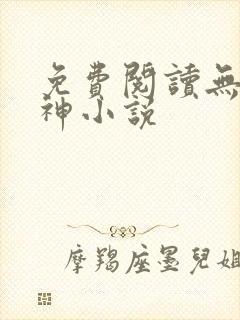 免費閱讀無
神小說
摩羯座墨兒姐